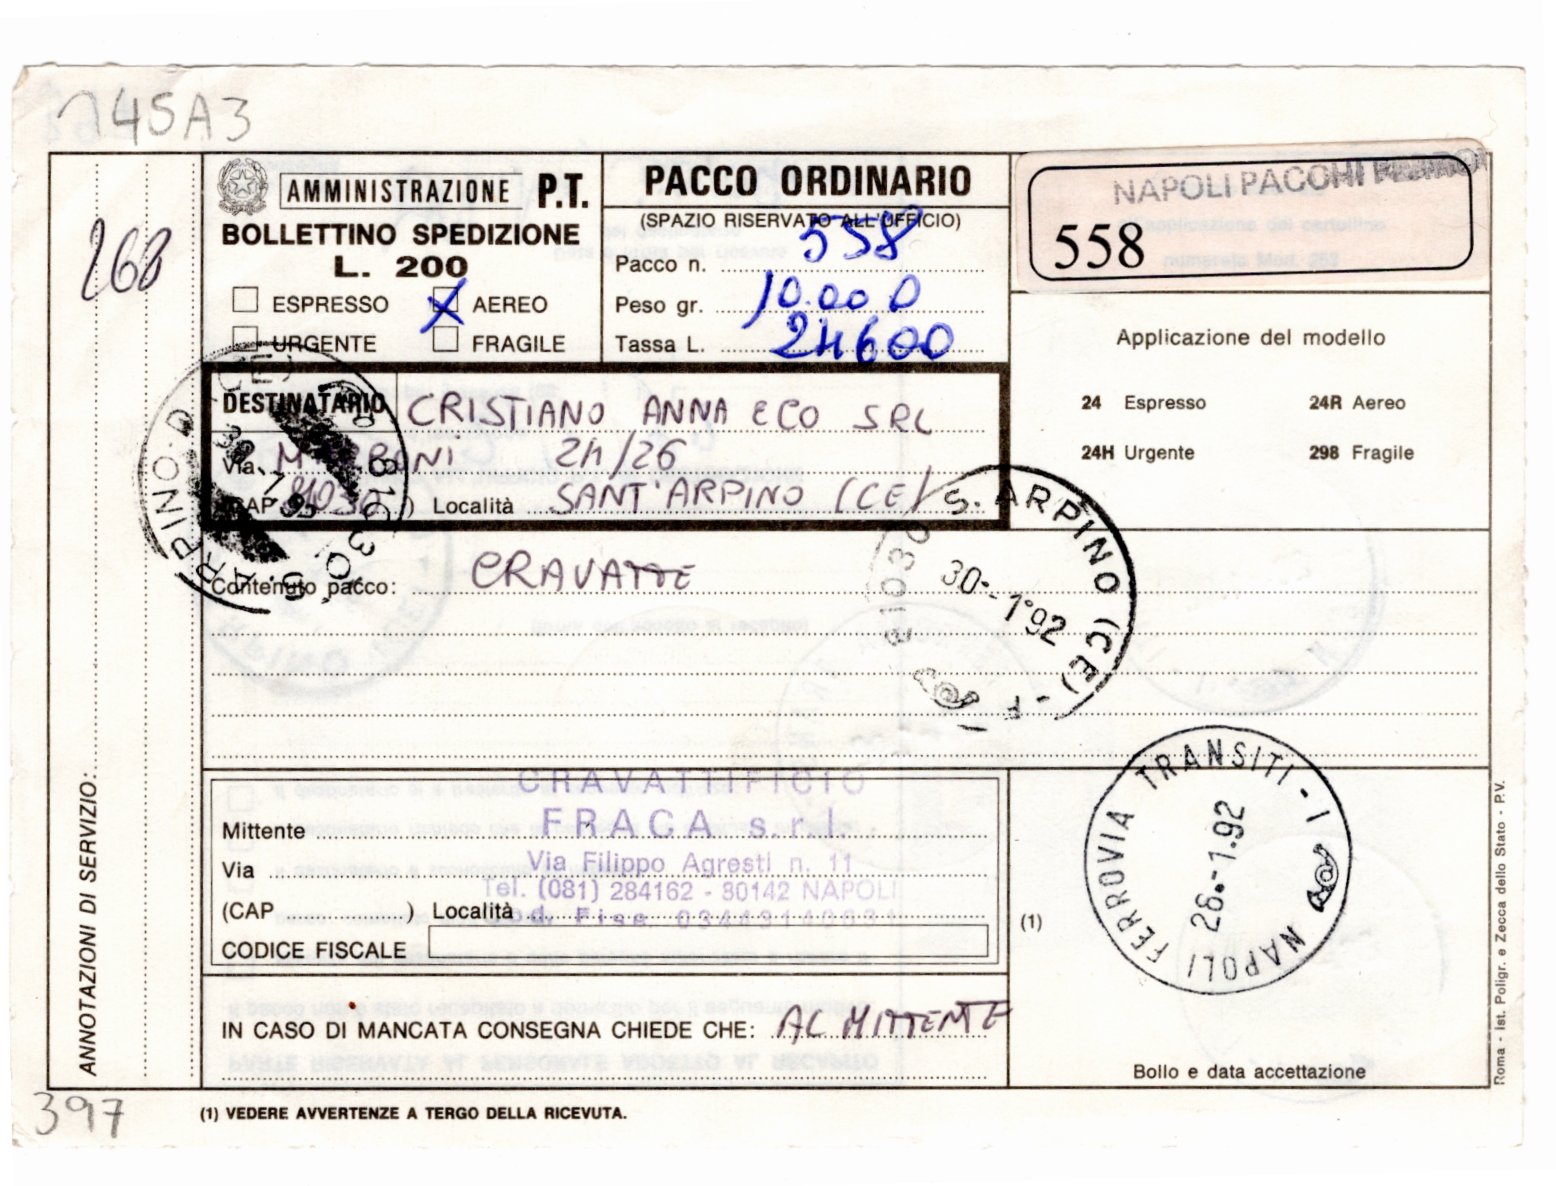 145A3
268
AMMINISTRAZIONE P.T.
BOLLETTINO SPEDIZIONE
L. 200
ESPRESSO AEREO
URGENTE FRAGILE
PACCO ORDINARIO
(SPAZIO RISERVATO ALL'UFFICIO)
Pacco n. 558
Peso gr. 10.000
Tassa L. 24600
NAPOLI PACCHI
558
Applicazione del modello
24 Espresso 24R Aereo
24H Urgente 298 Fragile
DESTINATARIO CRISTIANO ANNA ECO SRL
Via 24/26
CAP ) Località SANT'ARPINO (CE)
Contenuto pacco: CRAVATTE
S. ARPINO (CE) - F
81030
30-1-92
CRAVATTIFICIO
Mittente FRACA s.r.l.
Via Via Filippo Agresti n. 11
Tel. (081) 284162 - 80142 NAPOLI
(CAP ) Località
Cod. Fisc. 03443140631
CODICE FISCALE
IN CASO DI MANCATA CONSEGNA CHIEDE CHE: AL MITTENTE
(1)
NAPOLI FERROVIA TRANSITI - 1
26-1.92
Bollo e data accettazione
ANNOTAZIONI DI SERVIZIO:
Roma - Ist. Poligr. e Zecca dello Stato - P.V.
397
(1) VEDERE AVVERTENZE A TERGO DELLA RICEVUTA.